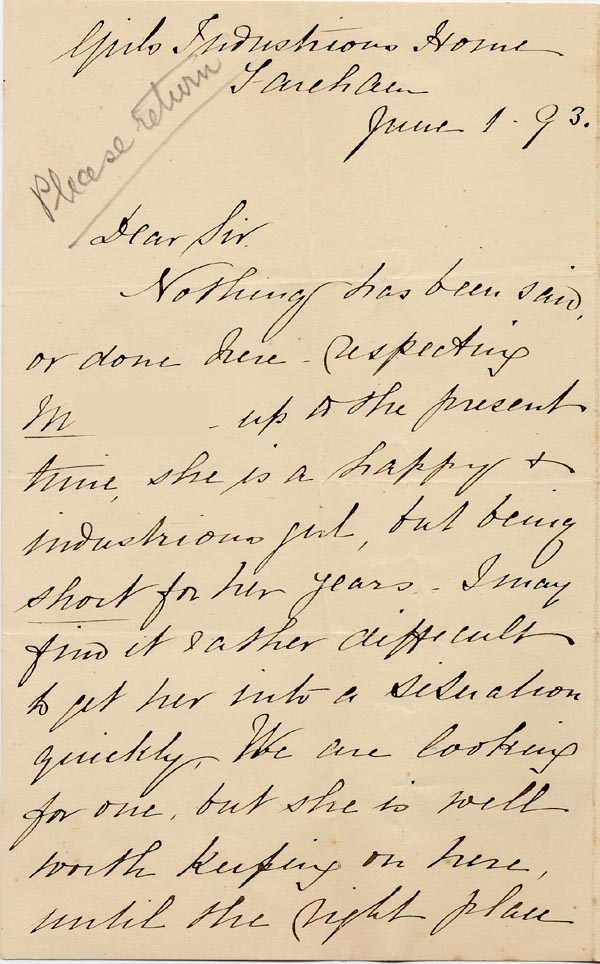 Girls Industrious Home
Fareham
June 1 - 93.
Please return
Dear Sir.
Nothing has been said,
or done here - respecting
M - up to the present
time, she is a happy &
industrious girl, but being
short for her years - I may
find it rather difficult
to get her into a situation
quickly. We are looking
for one, but she is well
worth keeping on here,
until the right place